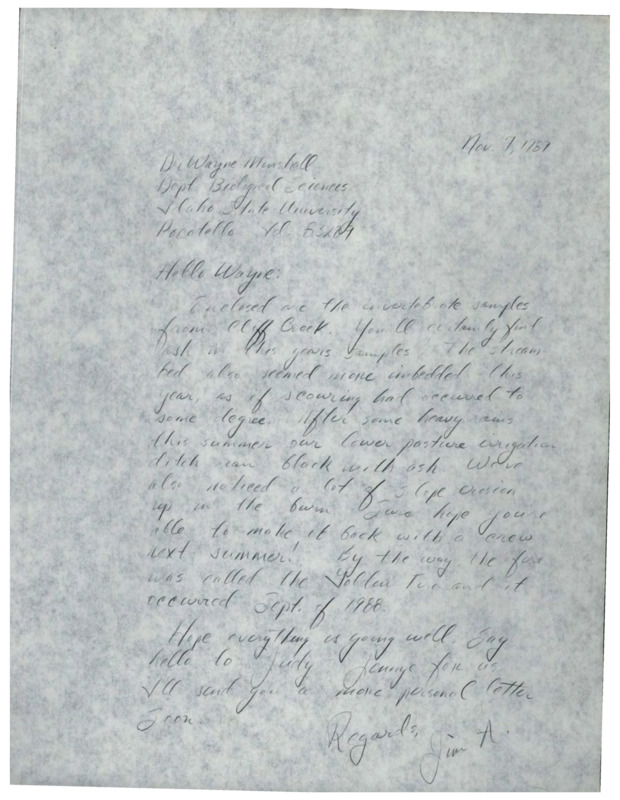 Nov. 7, 1989
Dr. Wayne Minshall
Dept. Biological Sciences
Idaho State University
Pocatello Id. 83209
Hello Wayne:
Enclosed are the invertebrate samples
from Cliff Creek. You'll certainly find
ash in this years samples. The stream
bed also seemed more imbedded this
year, as if scouring had occurred to
some degree. After some heavy rains
this summer our lower pasture irrigation
ditch ran black with ash. We've
also noticed a lot of slope erosion
up in the burn. Sure hope you're
able to make it back with a crew
next summer! By the way the fire
was called the Fire and it
occurred Sept. of 1988.
Hope everything is going well, Say
hello to Judy Jenny for us
I'll send you a more personal letter
Soon.
Regards,
Jim A.